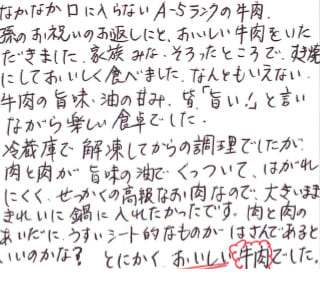 なかなか口に入らない A-5ランクの牛肉.
孫のお祝いのお返しにと、おいしい牛肉をいた
だきました. 家族みな、そろったところで、すき焼
にしておいしく食べました. なんともいえない.
牛肉の旨味、油の甘み. 皆「旨い!」と言い
ながら楽しい食卓でした.
冷蔵庫で解凍してからの調理でしたが.
肉と肉が旨味の油でくっついて、はがれ
にくく、せっかくの高級なお肉なので、大きいまま
きれいに鍋に入れたかったです. 肉と肉の
あいだに、うすいシート的なものがはさんであると
いいのかな? とにかく、おいしい牛肉でした.